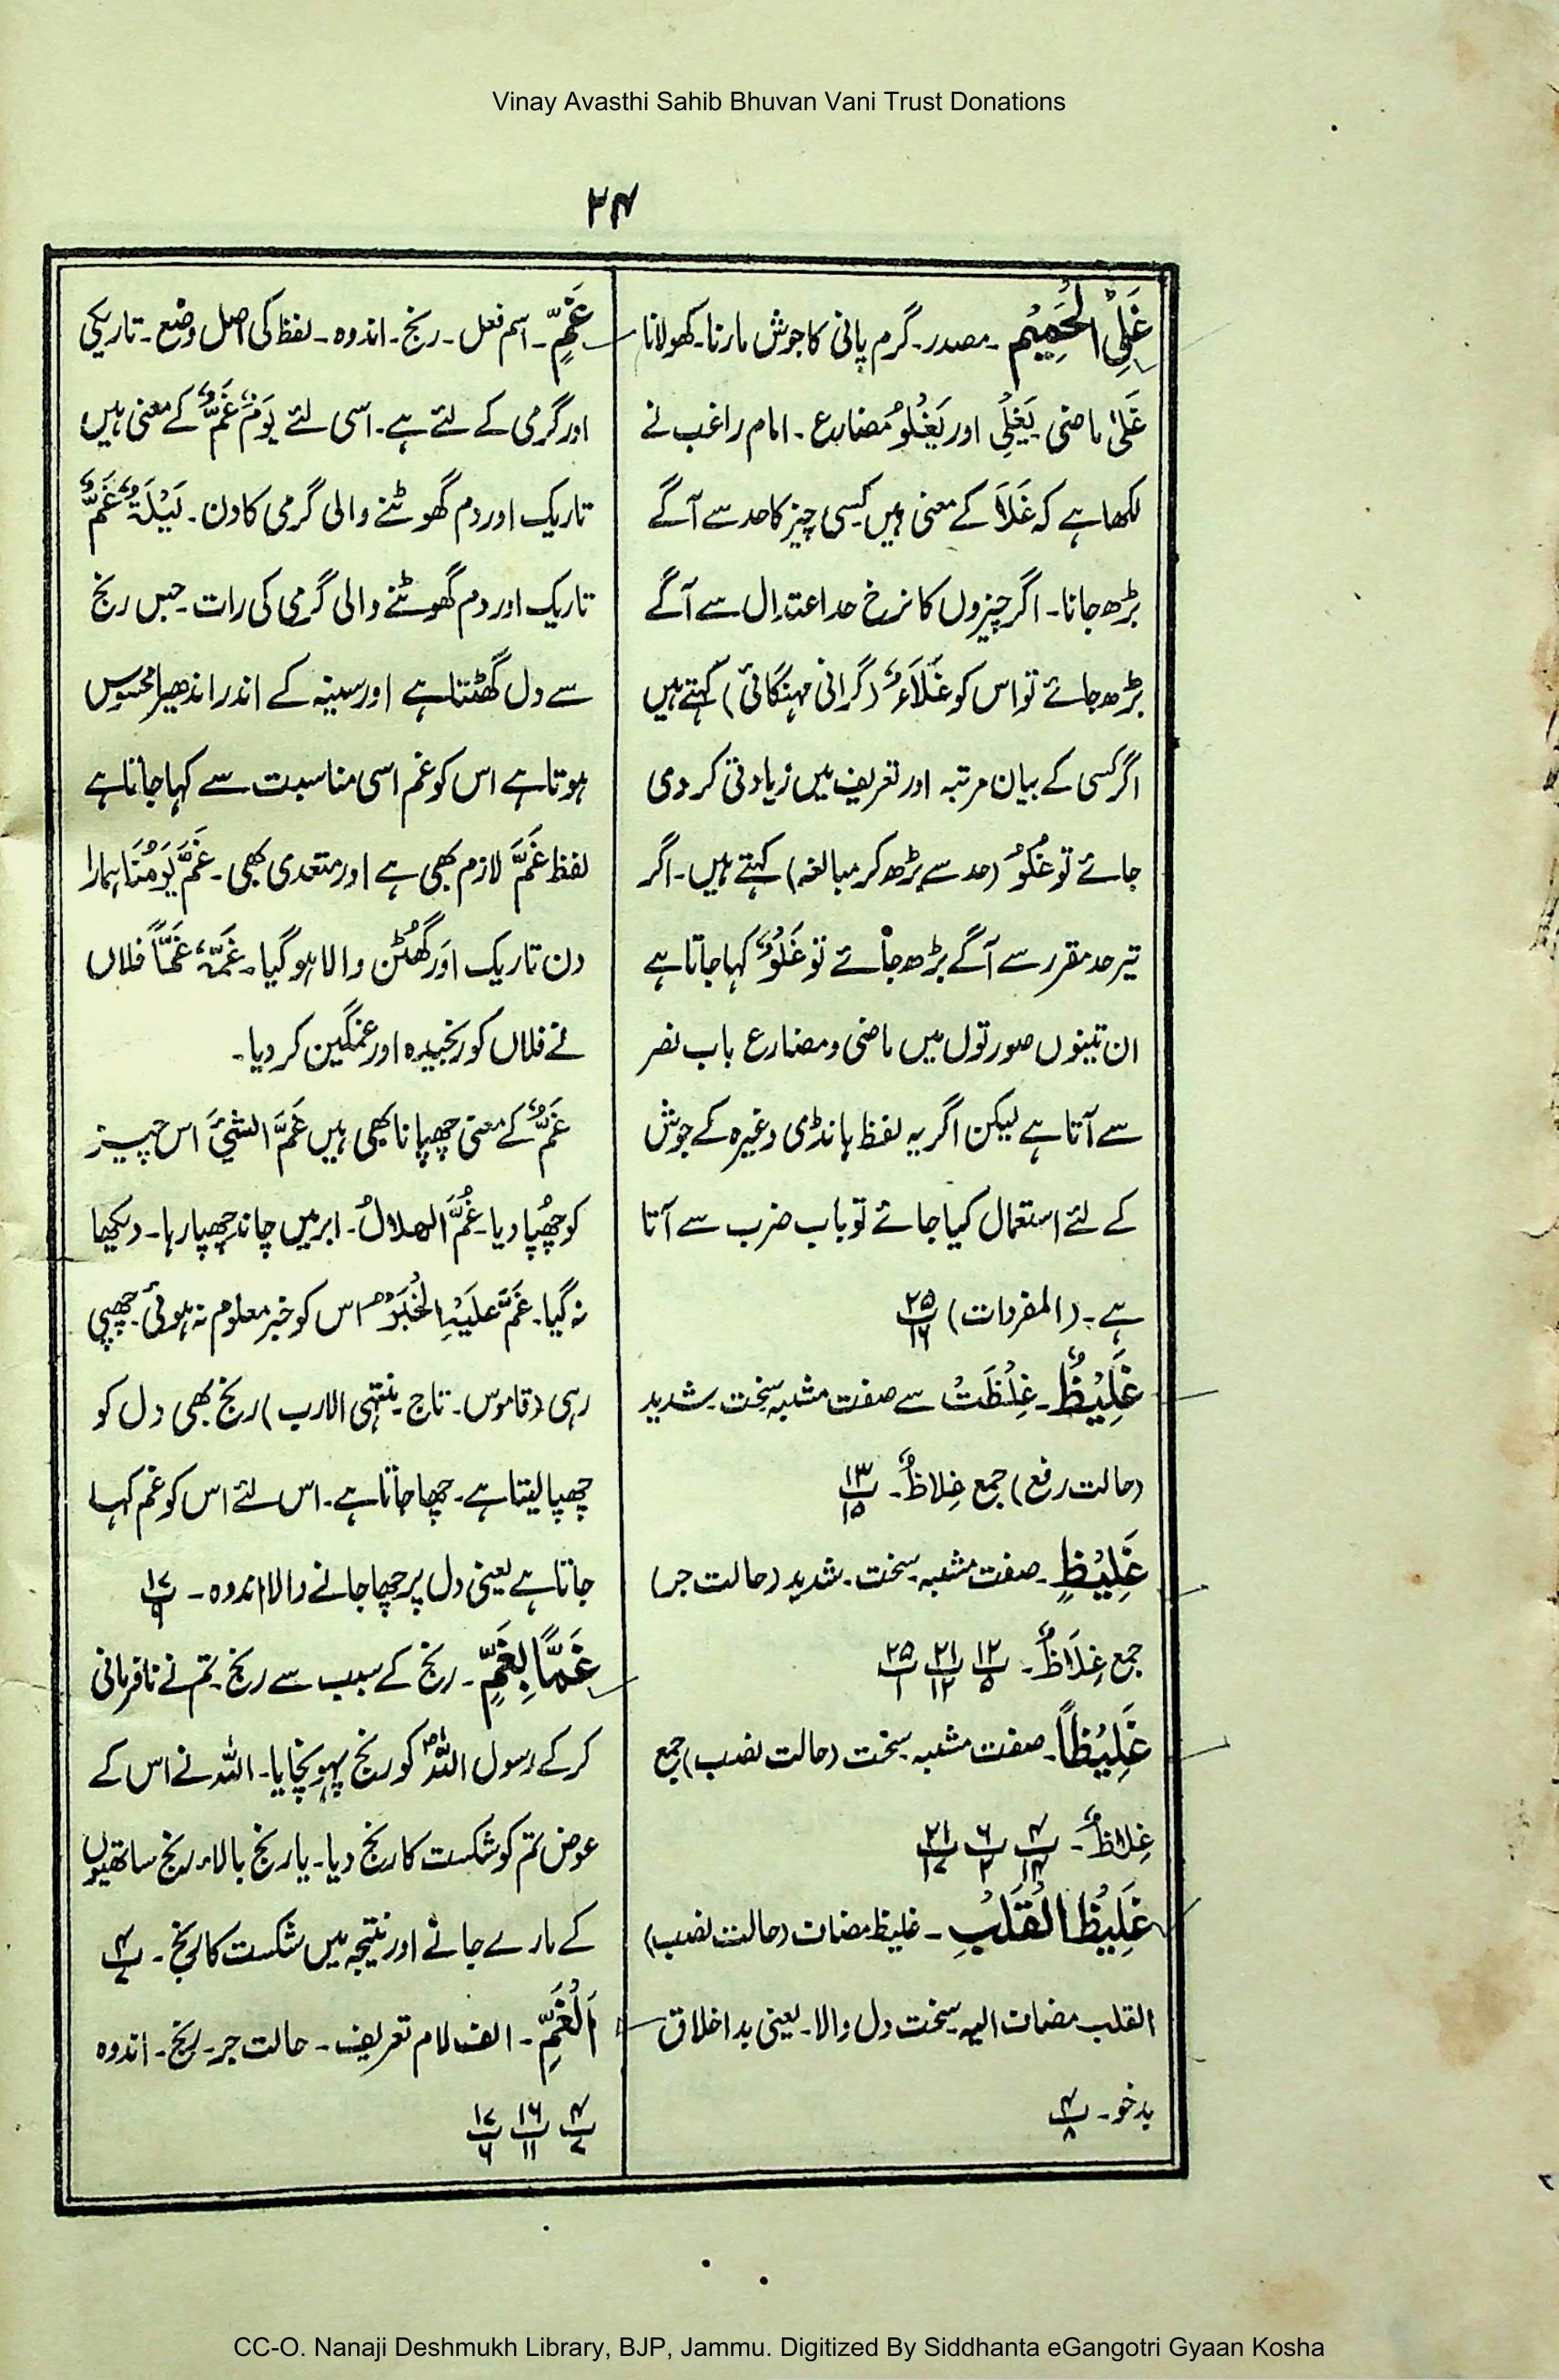 Vinay Avasthi Sahib Bhuvan Vani Trust Donations
۲۴
غَلِیْ الْحَمِیْمِ ۔ مصدر۔ گرم پانی کا جوش مارنا۔ کھولانا
غَلیٰ ماضی یَغْلِیْ اور یَغْلُوْ مضارع ۔ امام راغب نے
لکھا ہے کہ غَلَا کے معنی ہیں کسی چیز کا حد سے آگے
بڑھ جانا۔ اگر چیزوں کا نرخ حد اعتدال سے آگے
بڑھ جائے تو اس کو غَلَاءٌ (گرانی مہنگائی) کہتے ہیں
اگر کسی کے بیان مرتبہ اور تعریف میں زیادتی کر دی
جائے تو غُلُوٌّ (حد سے بڑھ کر مبالغہ) کہتے ہیں۔ اگر
تیر حد مقرر سے آگے بڑھ جائے تو غَلْوٌ کہا جاتا ہے
ان تینوں صورتوں میں ماضی و مضارع باب نصر
سے آتا ہے لیکن اگر یہ لفظ ہانڈی وغیرہ کے جوش
کے لئے استعمال کیا جائے تو باب ضرب سے آتا
ہے۔ (المفردات) پ۲۵ ۱۶
غَلِیْظٌ ۔ غِلْظَتٌ سے صفت مشبہ سخت۔ شدید
(حالت رفع) جمع غِلاظٌ ۔ پ۱۳ ۱۵
غَلِیْظٍ ۔ صفت مشبہ۔ سخت۔ شدید (حالت جر)
جمع غِلَاظٌ ۔ پ۱۲ ۵ پ۲۱ ۱۲ پ۲۵ ۱
غَلِیْظًا ۔ صفت مشبہ سخت (حالت نصب) جمع
غِلاظٌ ۔ پ۴ ۱۴ پ۶ ۲ پ۲۱ ۱۷
غَلِیْظَ الْقَلْبِ ۔ غلیظ مضاف (حالت نصب)
القلب مضاف الیہ سخت دل والا۔ یعنی بد اخلاق
بدخو۔ پ۴ ۸
غَمٍّ ۔ اسم فعل ۔ رنج ۔ اندوہ ۔ لفظ کی اصل وضع ۔ تاریکی
اور گرمی کے لئے ہے۔ اسی لئے یَوْمٌ غَمٌّ کے معنی ہیں
تاریک اور دم گھوٹنے والی گرمی کا دن۔ لَیْلَةٌ غَمٌّ
تاریک اور دم گھوٹنے والی گرمی کی رات۔ جس رنج
سے دل گھٹتا ہے اور سینہ کے اندر اندھیرا محسوس
ہوتا ہے اس کو غم اسی مناسبت سے کہا جاتا ہے
لفظ غَمَّ لازم بھی ہے اور متعدی بھی۔ غَمَّ یَوْمُنَا ہمارا
دن تاریک اور گھٹن والا ہو گیا۔ غَمَّہٗ غَمًّا فلاں
نے فلاں کو رنجیدہ اور غمگین کر دیا۔
غَمٌّ کے معنی چھپانا بھی ہیں غَمَّ الشَّیْءَ اس چیز
کو چھپا دیا۔ غُمَّ الھلالُ۔ ابر میں چاند چھپا رہا۔ دیکھا
نہ گیا۔ غَمَّ عَلَیْہِ الْخَبَرُ اس کو خبر معلوم نہ ہوئی۔ چھپی
رہی (قاموس۔ تاج۔ منتہی الارب) رنج بھی دل کو
چھپا لیتا ہے۔ چھا جاتا ہے۔ اس لئے اس کو غم کہا
جاتا ہے یعنی دل پر چھا جانے والا اندوہ ۔ پ۱۷ ۹
غَمًّا بِغَمٍّ ۔ رنج کے سبب سے رنج۔ تم نے نافرمانی
کر کے رسول اللہؐ کو رنج پہونچایا۔ اللہ نے اس کے
عوض تم کو شکست کا رنج دیا۔ یا رنج بالاء رنج ساتھیوں
کے مارے جانے اور نتیجہ میں شکست کا رنج ۔ پ۴ ۷
اَلْغَمِّ ۔ الف لام تعریف ۔ حالت جر۔ رنج۔ اندوہ
پ۴ ۷ پ۱۶ ۱۱ پ۱۷ ۶
CC-O. Nanaji Deshmukh Library, BJP, Jammu. Digitized By Siddhanta eGangotri Gyaan Kosha